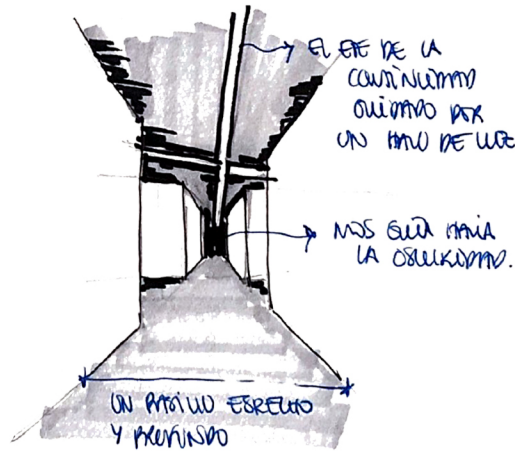 EL EJE DE LA
CONTINUIDAD
GUIADO POR
UN HALO DE LUZ
NOS GUÍA HACIA
LA OSCURIDAD.
UN PASILLO ESRECHO
Y PROFUNDO